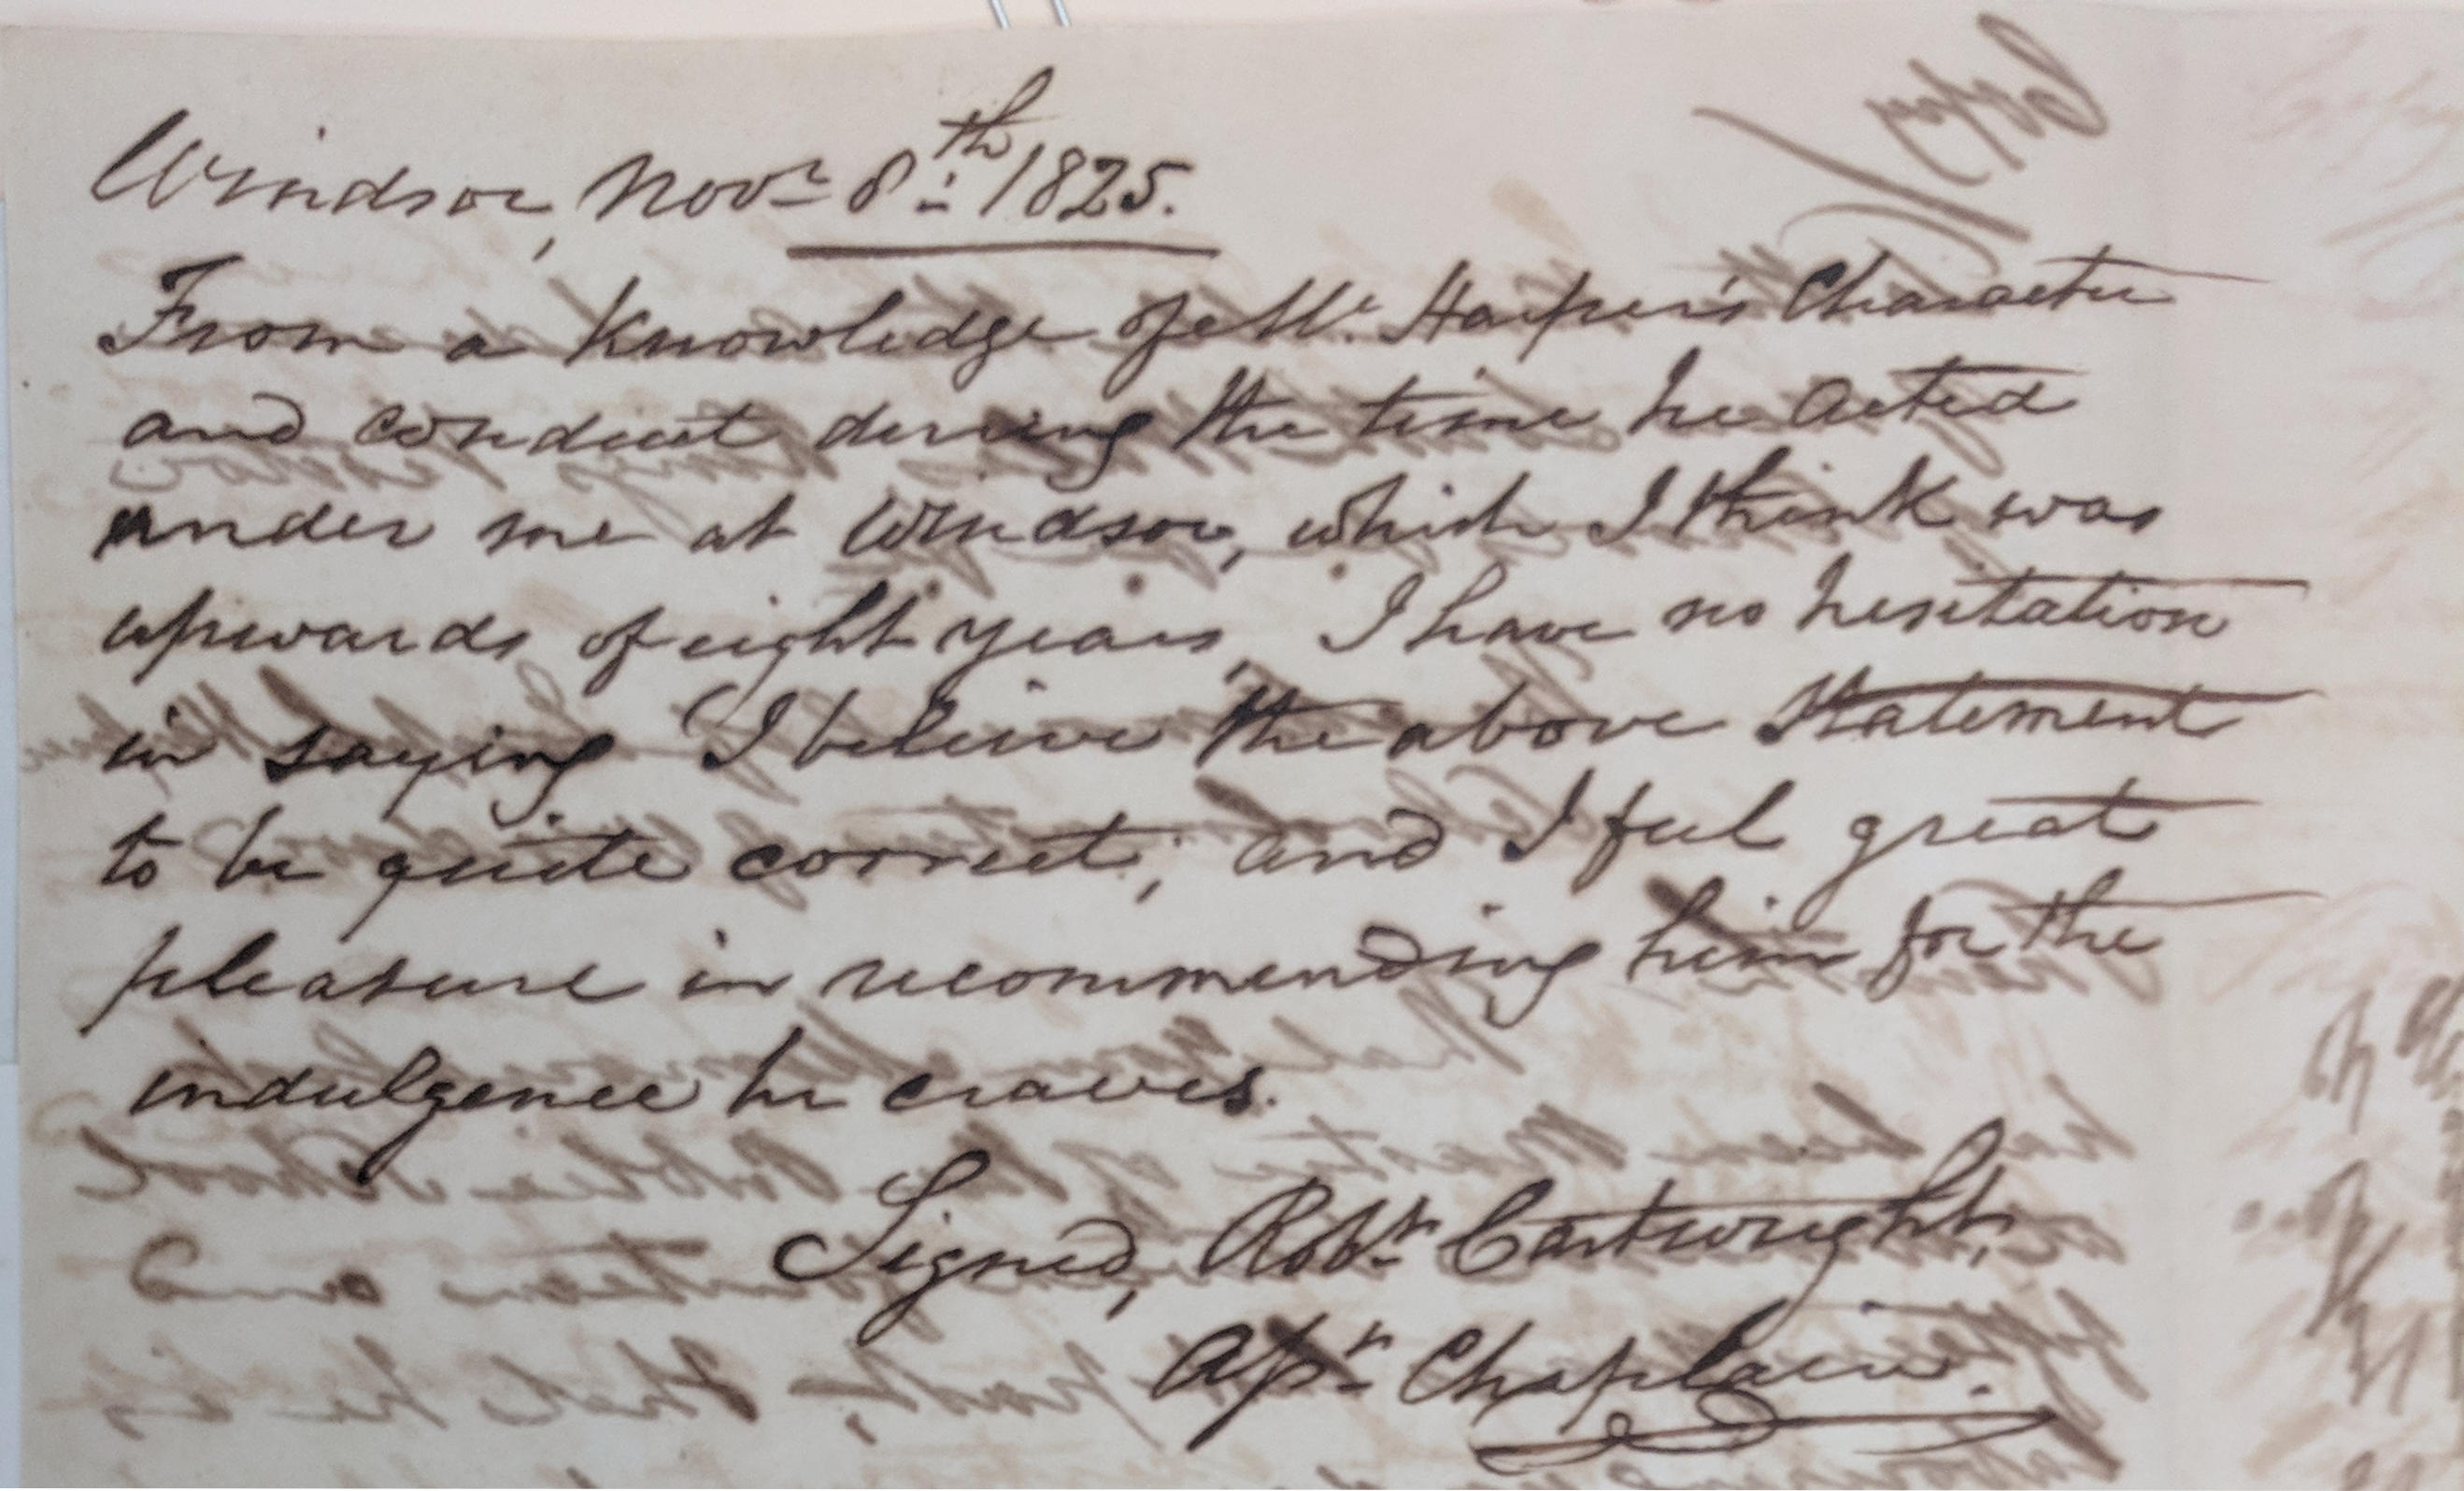 Windsor, Novr 8th 1825.
From a Knowledge of Mr. Harper's Character
and conduct during the time he acted
under me at Windsor, which I think was
upwards of eight years, I have no hesitation
in saying I believe the above Statement
to be quite correct; and I feel great
pleasure in recommending him for the
indulgence he craves.
Signed, Robt. Cartwright,
Asst. Chaplain.